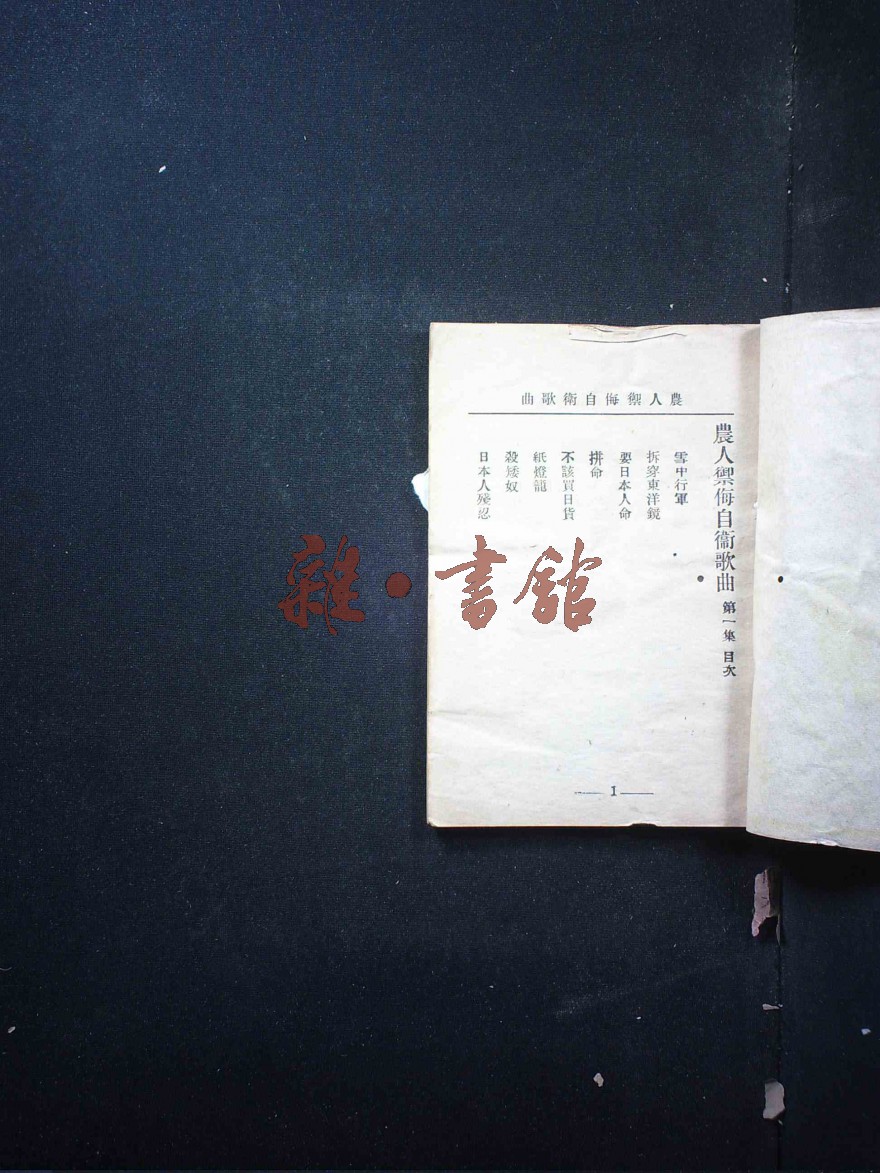 農人禦侮自衛歌曲
農人禦侮自衞歌曲 第一集 目次
雪中行軍
拆穿東洋鏡
要日本人命
拼命
不該買日貨
紙燈籠
殺矮奴
日本人殘忍
1
雜·書館